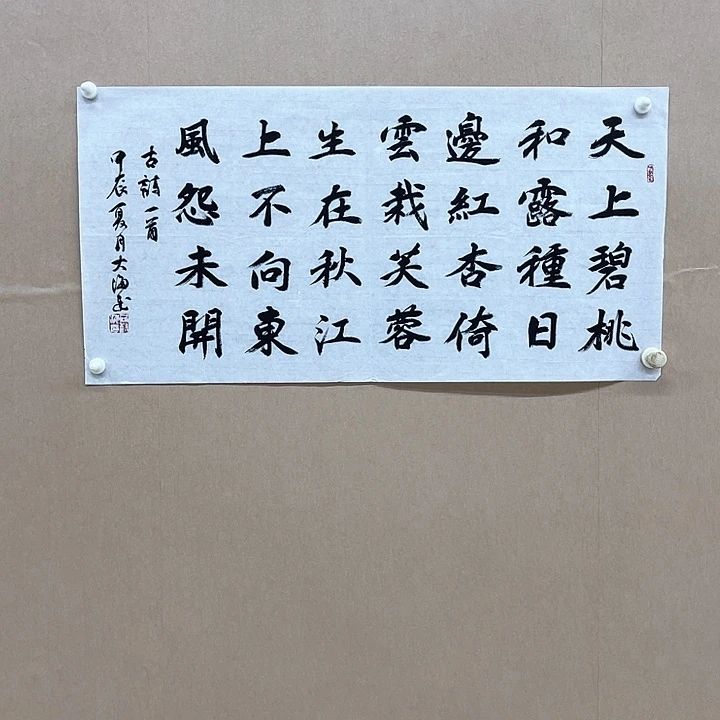 天上碧桃
和露種日
邊紅杏倚
雲栽芙蓉
生在秋江
上不向東
風怨未開
古詩一首
甲辰夏月大海書